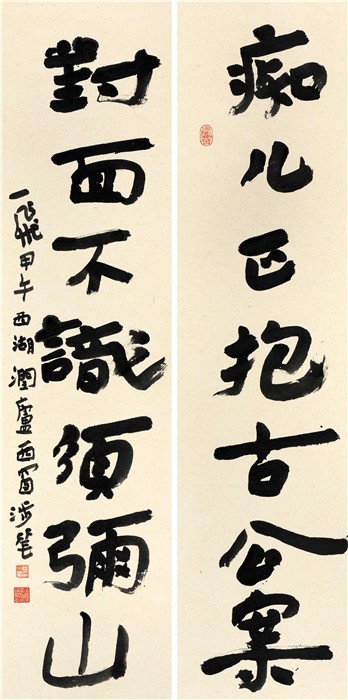 痴儿正抱古公案
對面不識須彌山
一飛甲午西湖潤廬西窗涉筆